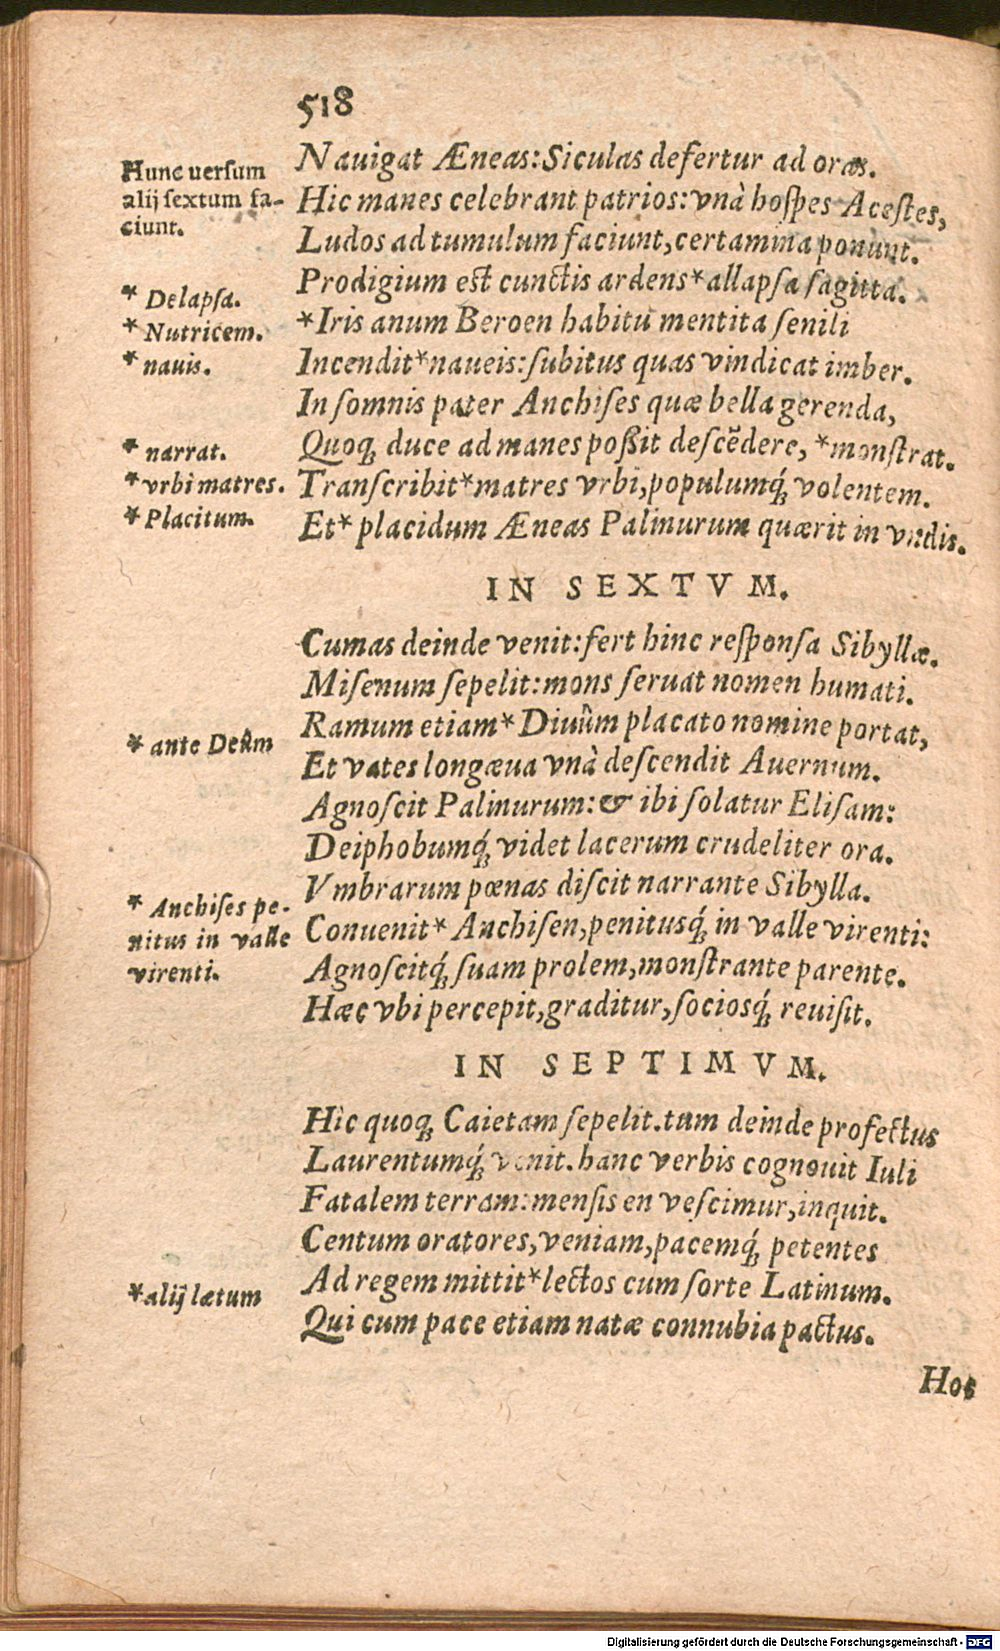 518
Hunc uersum
alij sextum fa-
ciunt.
Nauigat Æneas: Siculas defertur ad oras.
Hic manes celebrant patrios: vnà hoſpes Aceſtes,
Ludos ad tumulum faciunt, certamina ponunt.
Prodigium eſt cunctis ardens*allapſa ſagitta.
* Delapſa.
*Iris anum Beroen habitu mentita ſenili
* Nutricem.
Incendit*naueis: ſubitus quas vindicat imber.
* nauis.
In ſomnis pater Anchiſes quæ bella gerenda,
Quoqꝫ duce ad manes poßit deſcẽdere, *monſtrat.
* narrat.
Tranſcribit*matres vrbi, populumq́ꝫ volentem.
*vrbi matres.
Et* placidum Æneas Palinurum quærit in vndis.
* Placitum.
IN SEXTVM.
Cumas deinde venit: fert hinc reſponſa Sibyllæ.
Miſenum ſepelit: mons ſeruat nomen humati.
Ramum etiam* Diuûm placato nomine portat,
* ante Deûm
Et vates longæua vnà deſcendit Auernum.
Agnoſcit Palinurum: & ibi ſolatur Eliſam:
Deiphobumq́ꝫ videt lacerum crudeliter ora.
Vmbrarum pœnas diſcit narrante Sibylla.
* Anchiſes pe-
nitus in valle
virenti.
Conuenit* Anchiſen, penitusq́ꝫ in valle virenti:
Agnoſcitq́ꝫ ſuam prolem, monſtrante parente.
Hæc vbi percepit, graditur, ſociosq́ꝫ reuiſit.
IN SEPTIMVM.
Hic quoqꝫ Caietam ſepelit. tum deinde profectus
Laurentumq́ꝫ venit. hanc verbis cognouit Iuli
Fatalem terram: menſis en veſcimur, inquit.
Centum oratores, veniam, pacemq́ꝫ petentes
Ad regem mittit*lectos cum ſorte Latinum.
*alij lætum
Qui cum pace etiam natæ connubia pactus.
Hoc
Digitalisierung gefördert durch die Deutsche Forschungsgemeinschaft - DFG